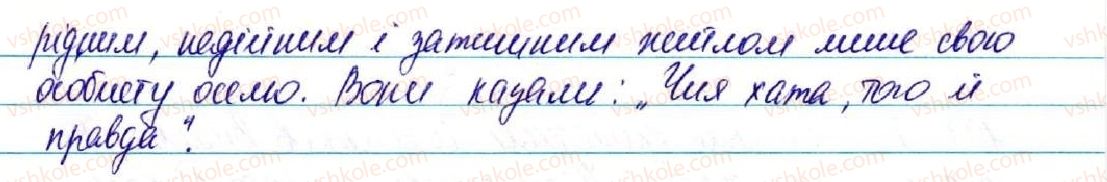 рідним, надійним і затишним житлом лише свою
особисту оселю. Вони казали: „Чия хата, того й
правда“.